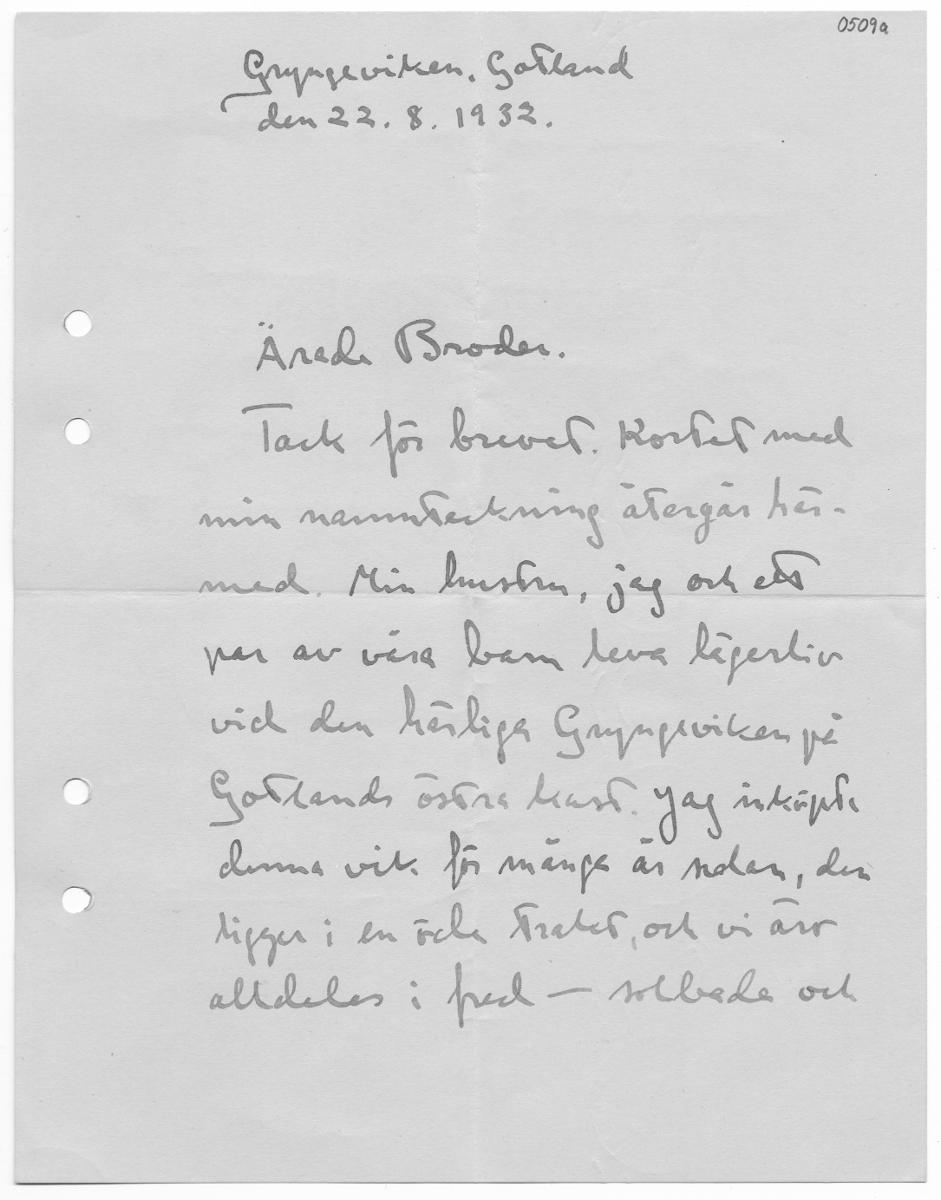 0509a
Gryngeviken, Gotland
den 22. 8. 1932.
Ärade Broder.
Tack för brevet. Kortet med
min namnteckning återgår här-
med. Min hustru, jag och ett
par av våra barn leva lägerliv
vid den härliga Gryngeviken på
Gotlands östra kust. Jag inköpte
denna vik för många år sedan, den
ligger i en öde trakt, och vi äro
alldeles i fred — solbada och